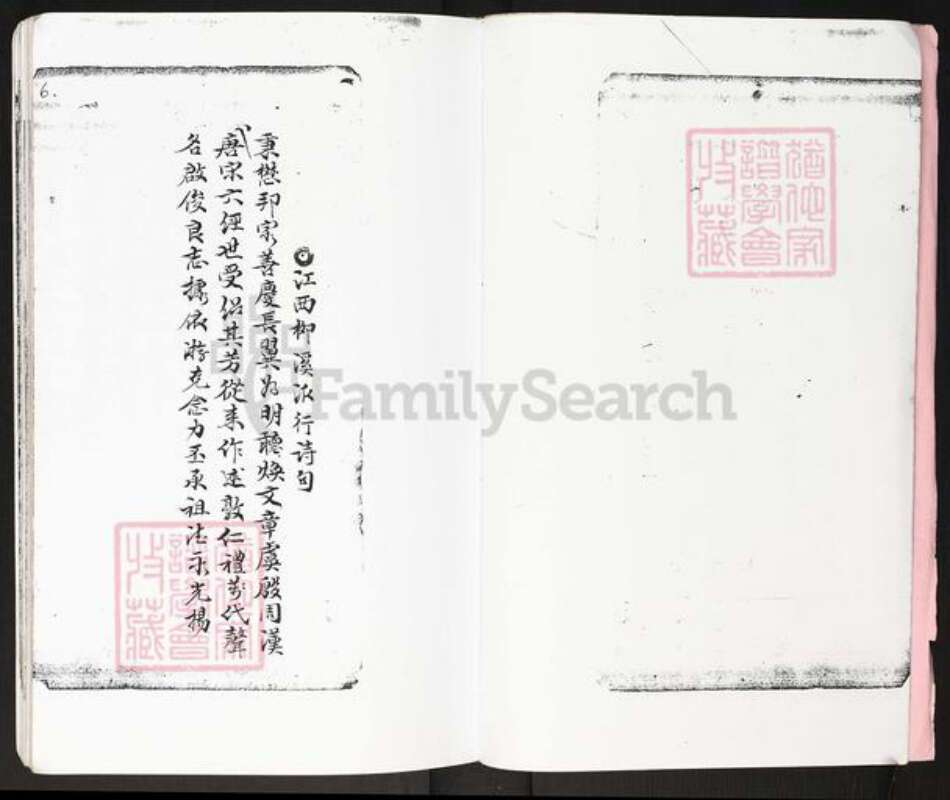 6.
江西柳溪派行诗句
秉懋邦宗善慶長翼為明聽煥文章虞殷周漢
唐宋六經世受紹其芳從来作述敦仁禮萬代聲
名啟俊良志據依游克念力丕承祖法永光揚
猶他家
譜學會
收藏
猶他家
譜學會
收藏
FamilySearch